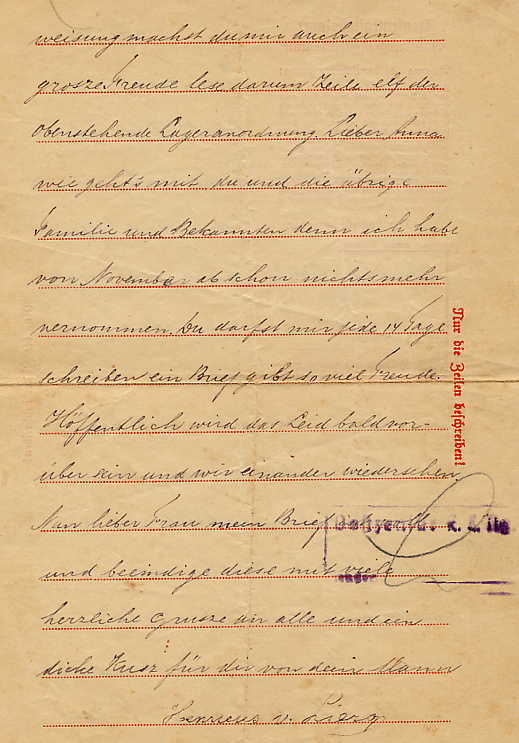 weisung machst du mir auch ein
grosze Freude lese darum Zeile elf der
obenstehende Lageranordnung. Lieber Anna
wie geht's mit du und die übrige
Familie und Bekannten denn ich habe
von November ab schon nichts mehr
vernommen. Du darfst mir jede 14 Tage
schreiben ein Brief gibt so viel Freude.
Höffentlich wird das Leid bald vor-
über sein und wir einander wiedersehen
Nun lieber Frau mein Brief
und beeindige diese mit viele
herzliche Grusze an alle und ein
dicke Kusz für dir von dein Mann
v.
Nur die Zeilen beschreiben!